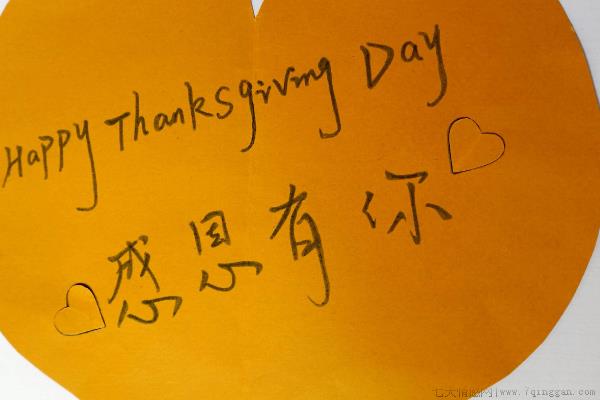 Happy Thanksgiving Day
感恩有你
七大情感网|www.7qinggan.com